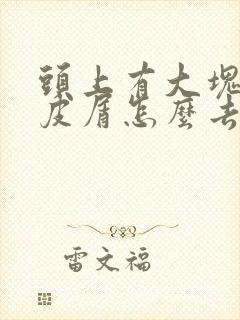 頭上有大塊
皮屑怎麼去
雷文福